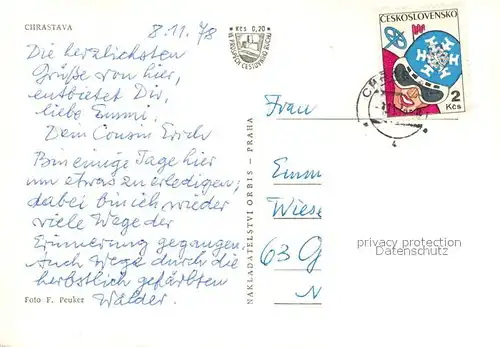 CHRASTAVA
8.11.78
Die herzlichsten
Grüße von hier,
entbietet Dir,
liebe Emmi,
Dein Cousin Erich
Bin einige Tage hier
um etwas zu erledigen,
dabei bin ich wieder
viele Wege der
Erinnerung gegangen.
Auch Wege durch die
herbstlich gefärbten
Wälder.
Foto F. Peuker
NAKLADATELSTVÍ ORBIS - PRAHA
Kčs 0,20
ČESKOSLOVENSKO
2
Kčs
Frau
Emm
Wiese
63 G
N
privacy protection
Datenschutz